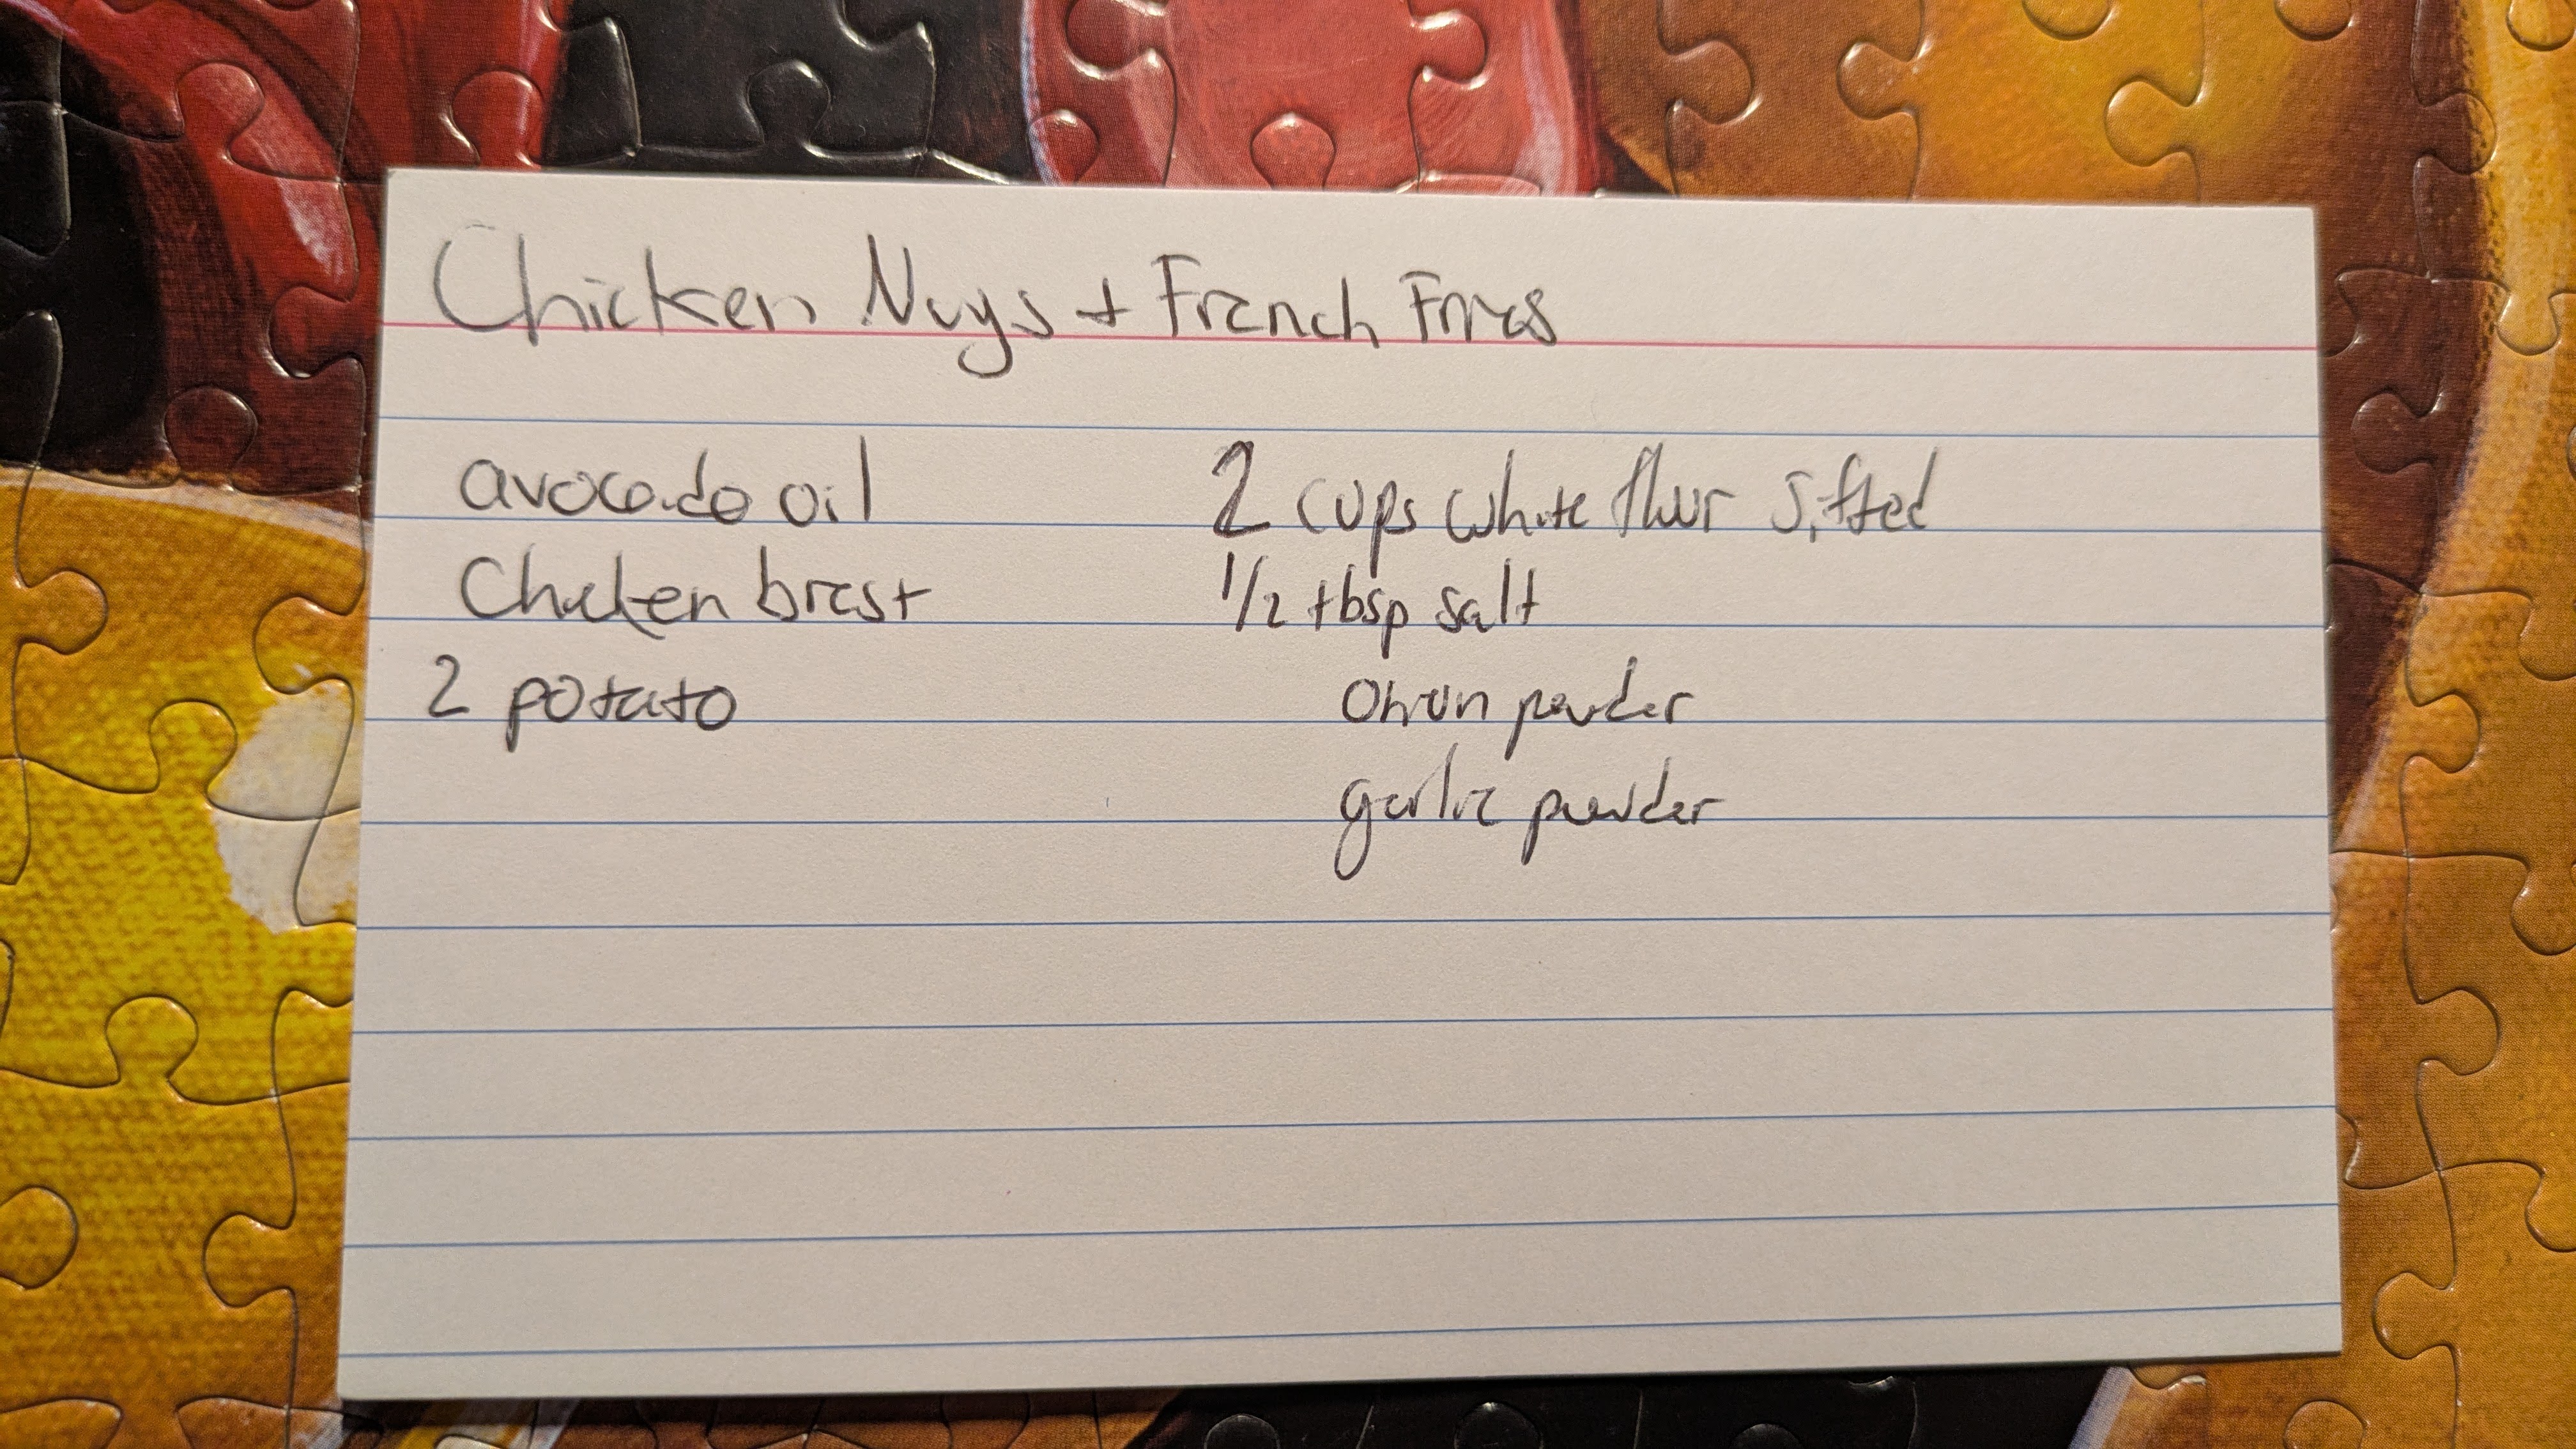 Chicken Nugs + French Fries
avocado oil
Chicken brest
2 potato
2 cups white flour sifted
1/2 tbsp salt
onion powder
garlic powder